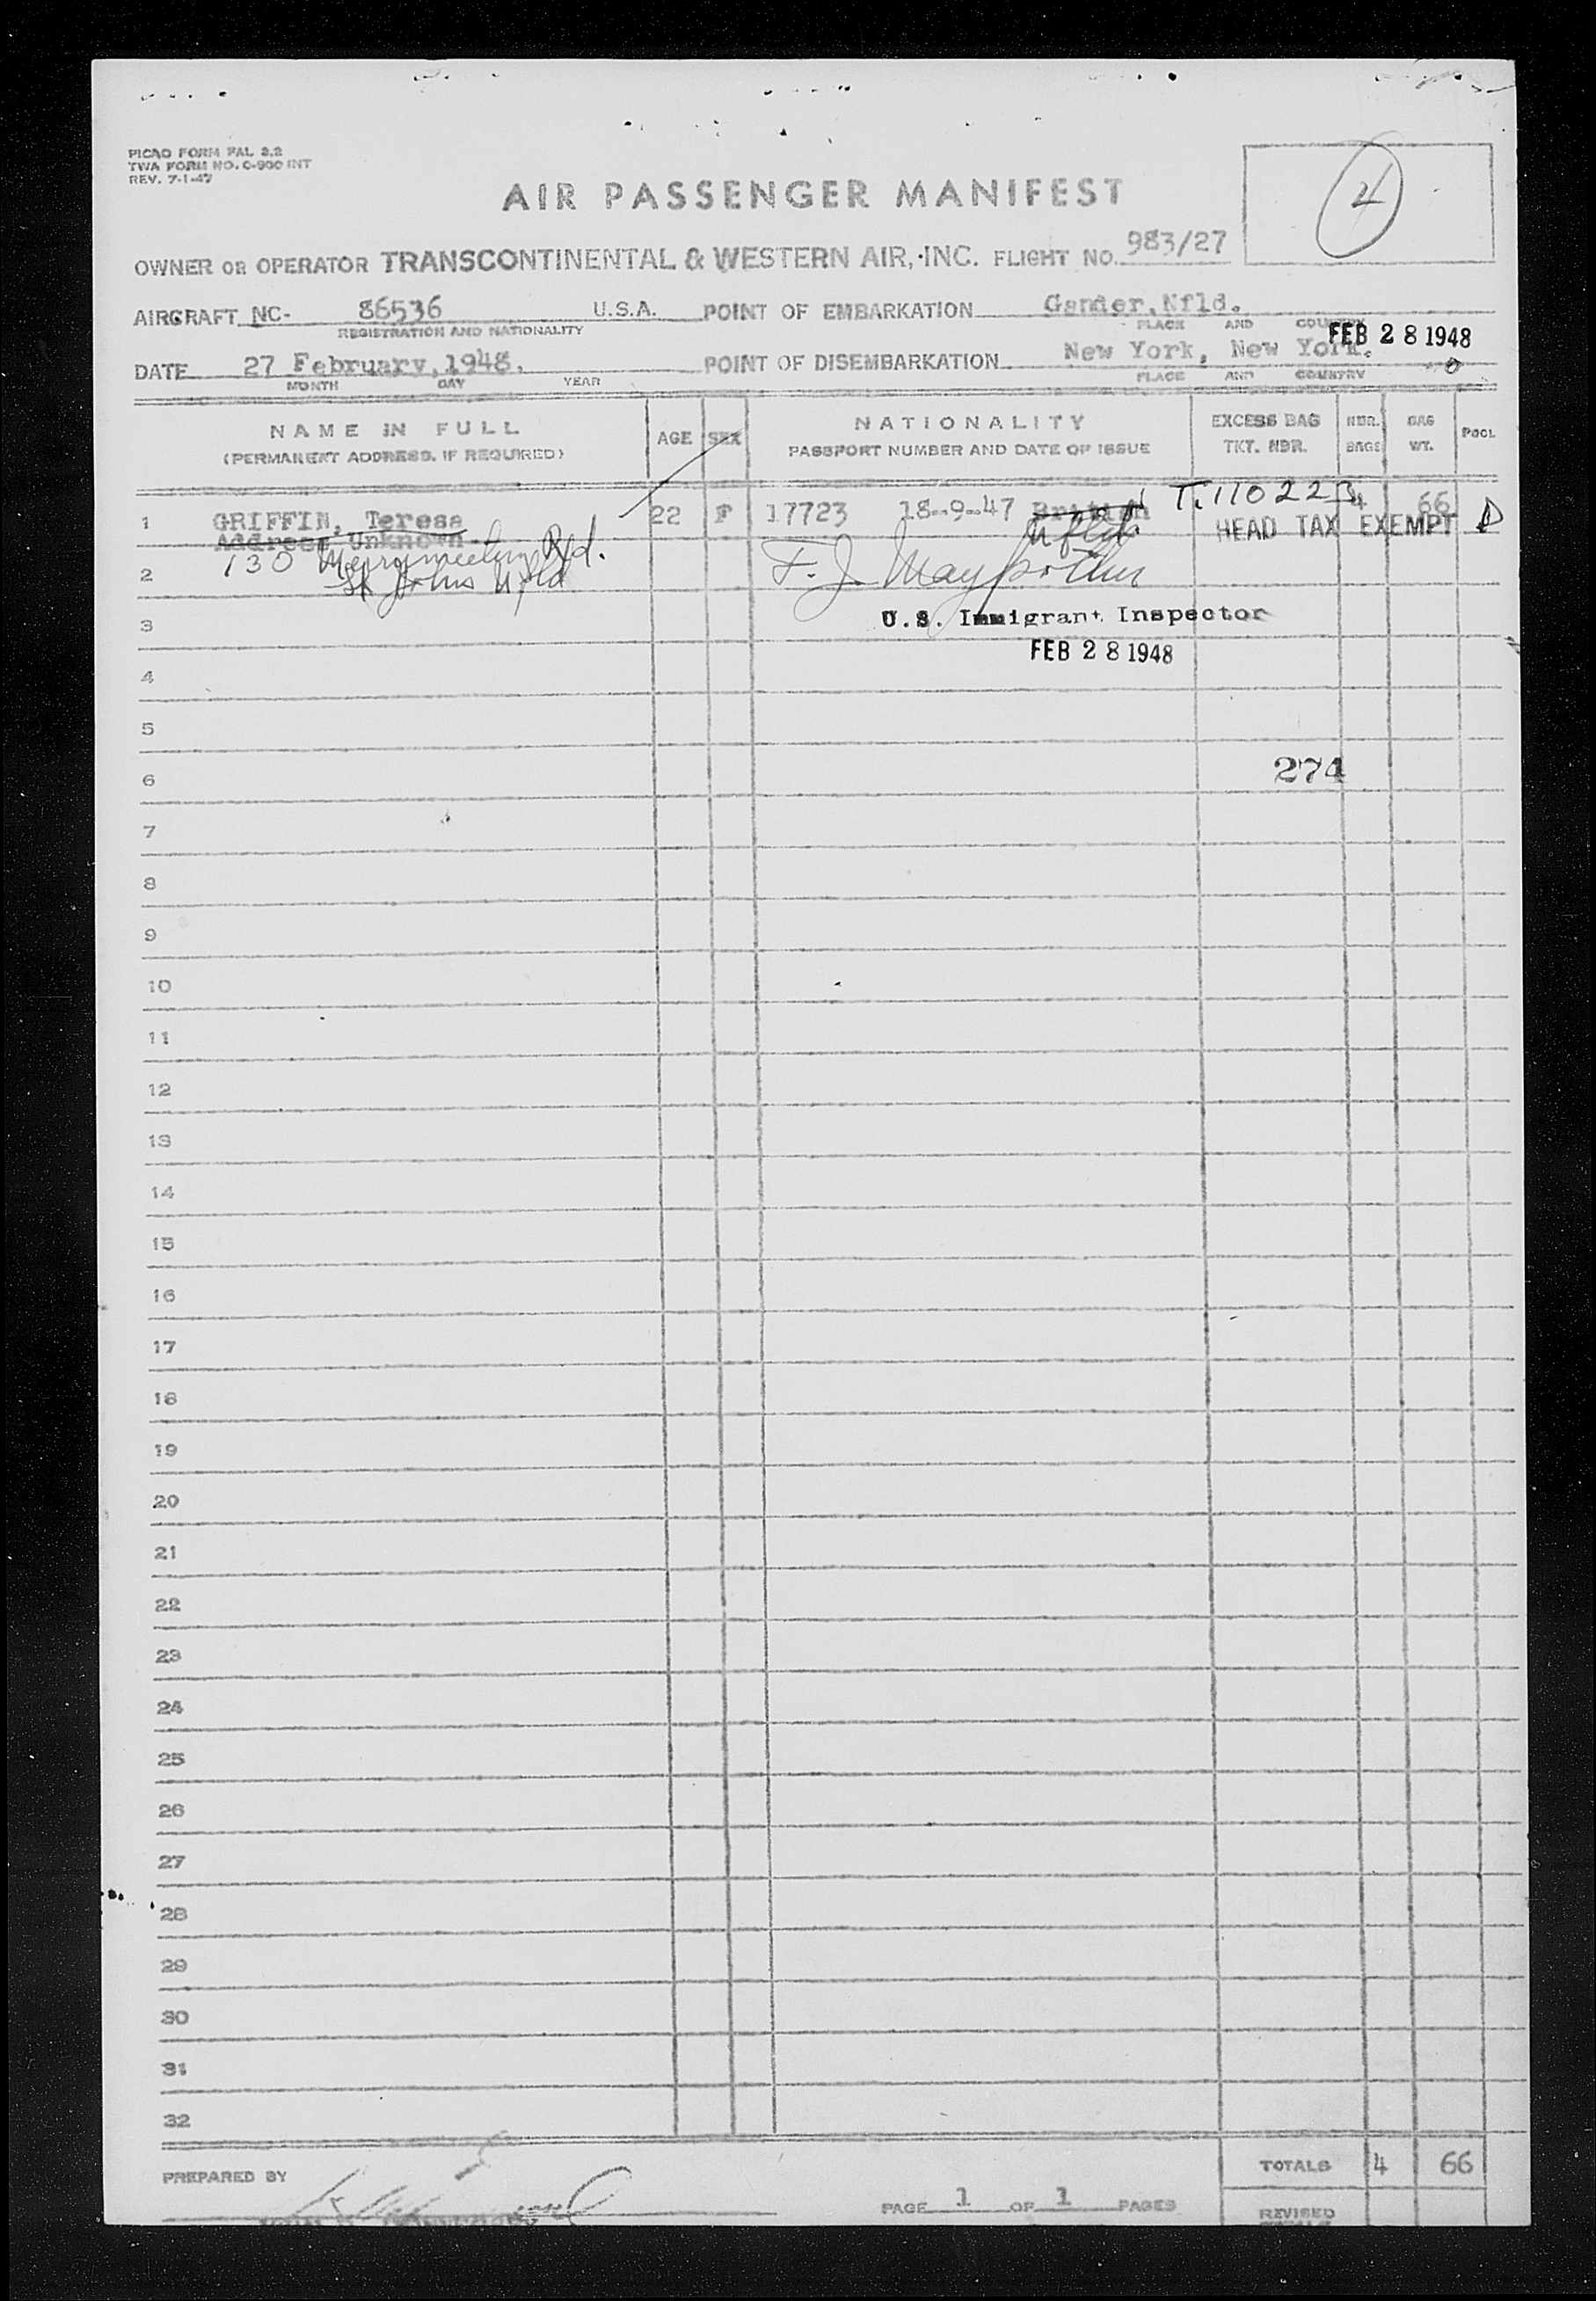 PICAO FORM PAL 2.2
TWA FORM NO. O-900 INT
REV. 7-1-47
4
AIR PASSENGER MANIFEST
OWNER OR OPERATOR TRANSCONTINENTAL & WESTERN AIR, INC. FLIGHT NO. 983/27
AIRCRAFT NC- 86536 U.S.A. POINT OF EMBARKATION Gander, Nfld.
REGISTRATION AND NATIONALITY PLACE AND COUNTRY
FEB 28 1948
DATE 27 February, 1948. POINT OF DISEMBARKATION New York, New York.
MONTH DAY YEAR PLACE AND COUNTRY
NAME IN FULL AGE SEX NATIONALITY EXCESS BAG NBR. BAG
(PERMANENT ADDRESS, IF REQUIRED) PASSPORT NUMBER AND DATE OF ISSUE TKT. NBR. BAGS WT.
1 GRIFFIN, Teresa 22 F 17723 18-9-47 British T.110223 4 66
Address Unknown. Nfld HEAD TAX EXEMPT
2 130 Merrymeeting Rd. F. J.
St Johns Nfld
3 U.S. Immigrant Inspector
FEB 28 1948
4
5
6 274
7
8
9
10
11
12
13
14
15
16
17
18
19
20
21
22
23
24
25
26
27
28
29
30
31
32
TOTALS 4 66
PREPARED BY
PAGE 1 OF 1 PAGES
REVISED